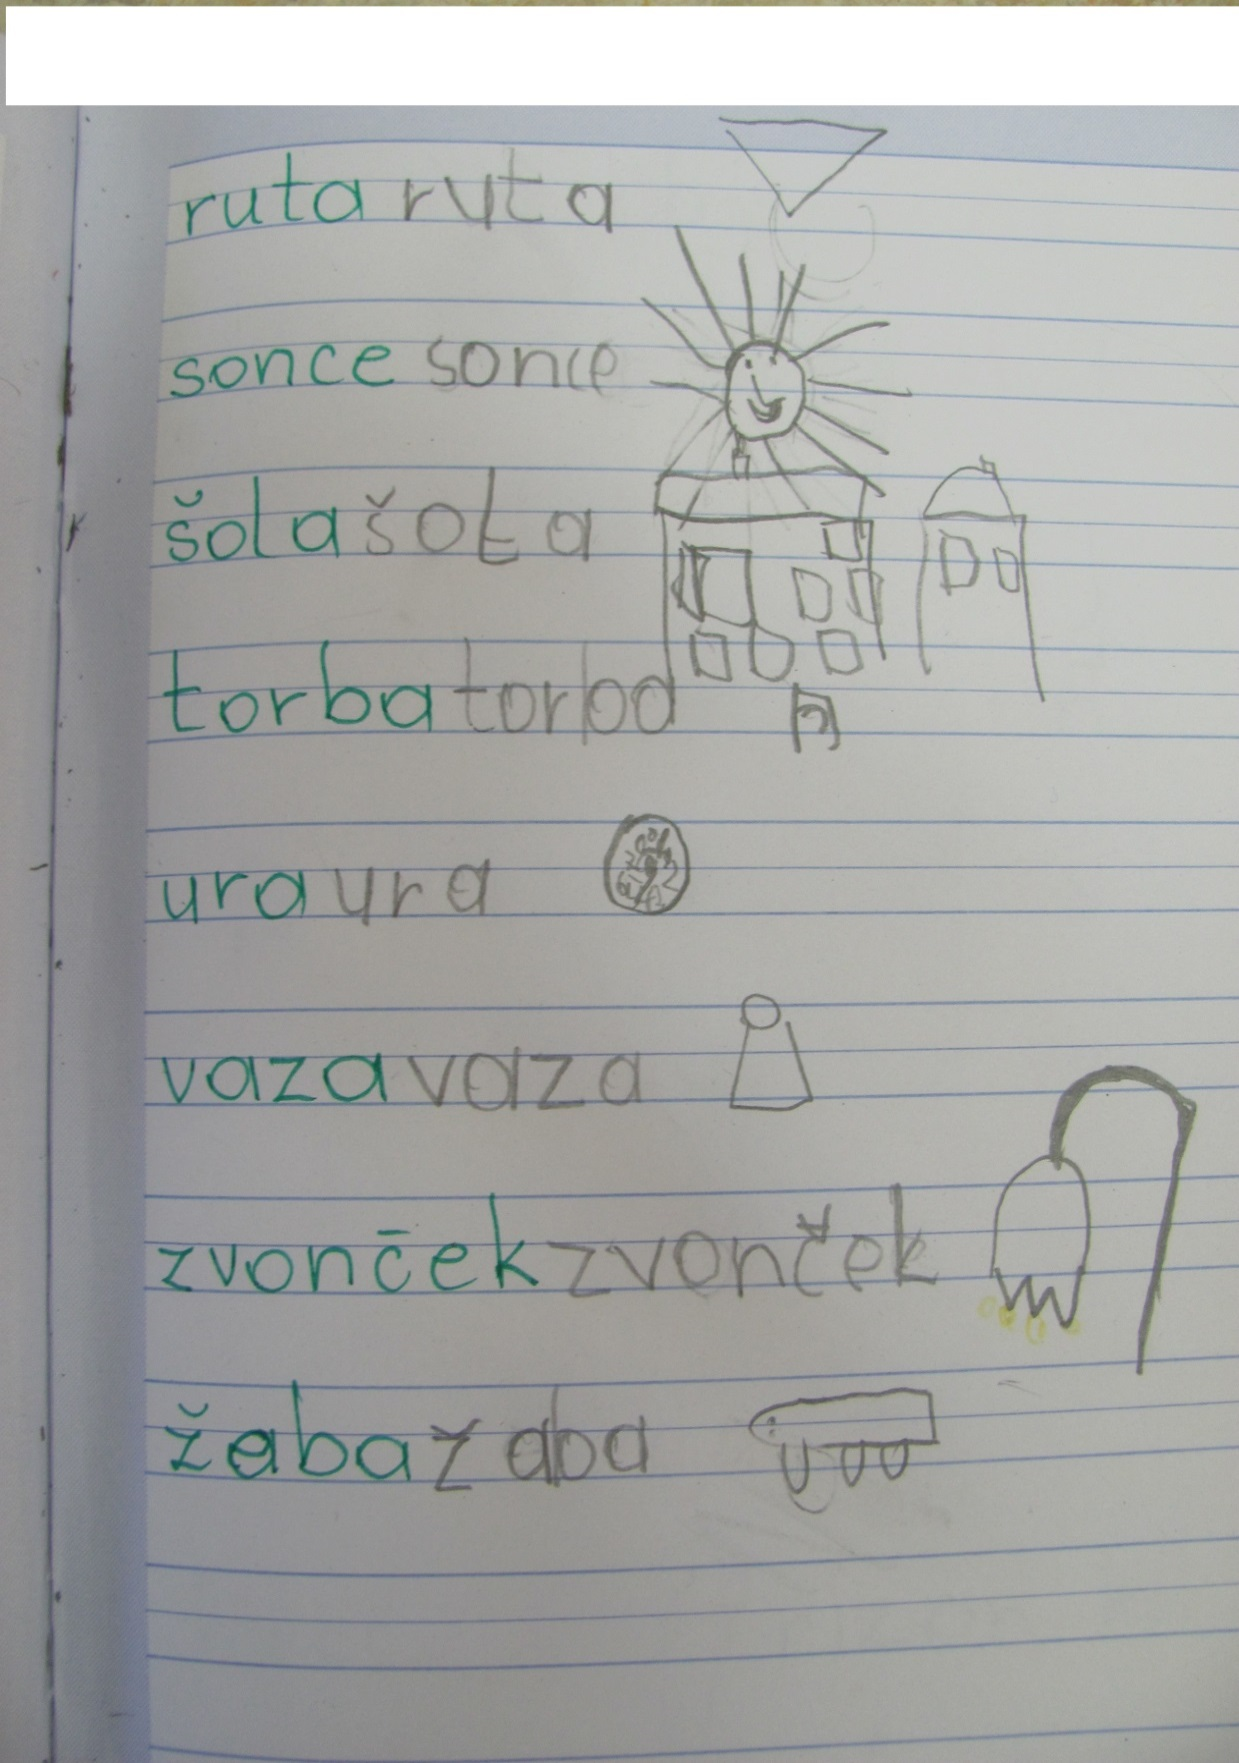 ruta ruta
sonce sonce
šola šola
torba torba
ura ura
vaza vaza
zvonček zvonček
žaba žaba